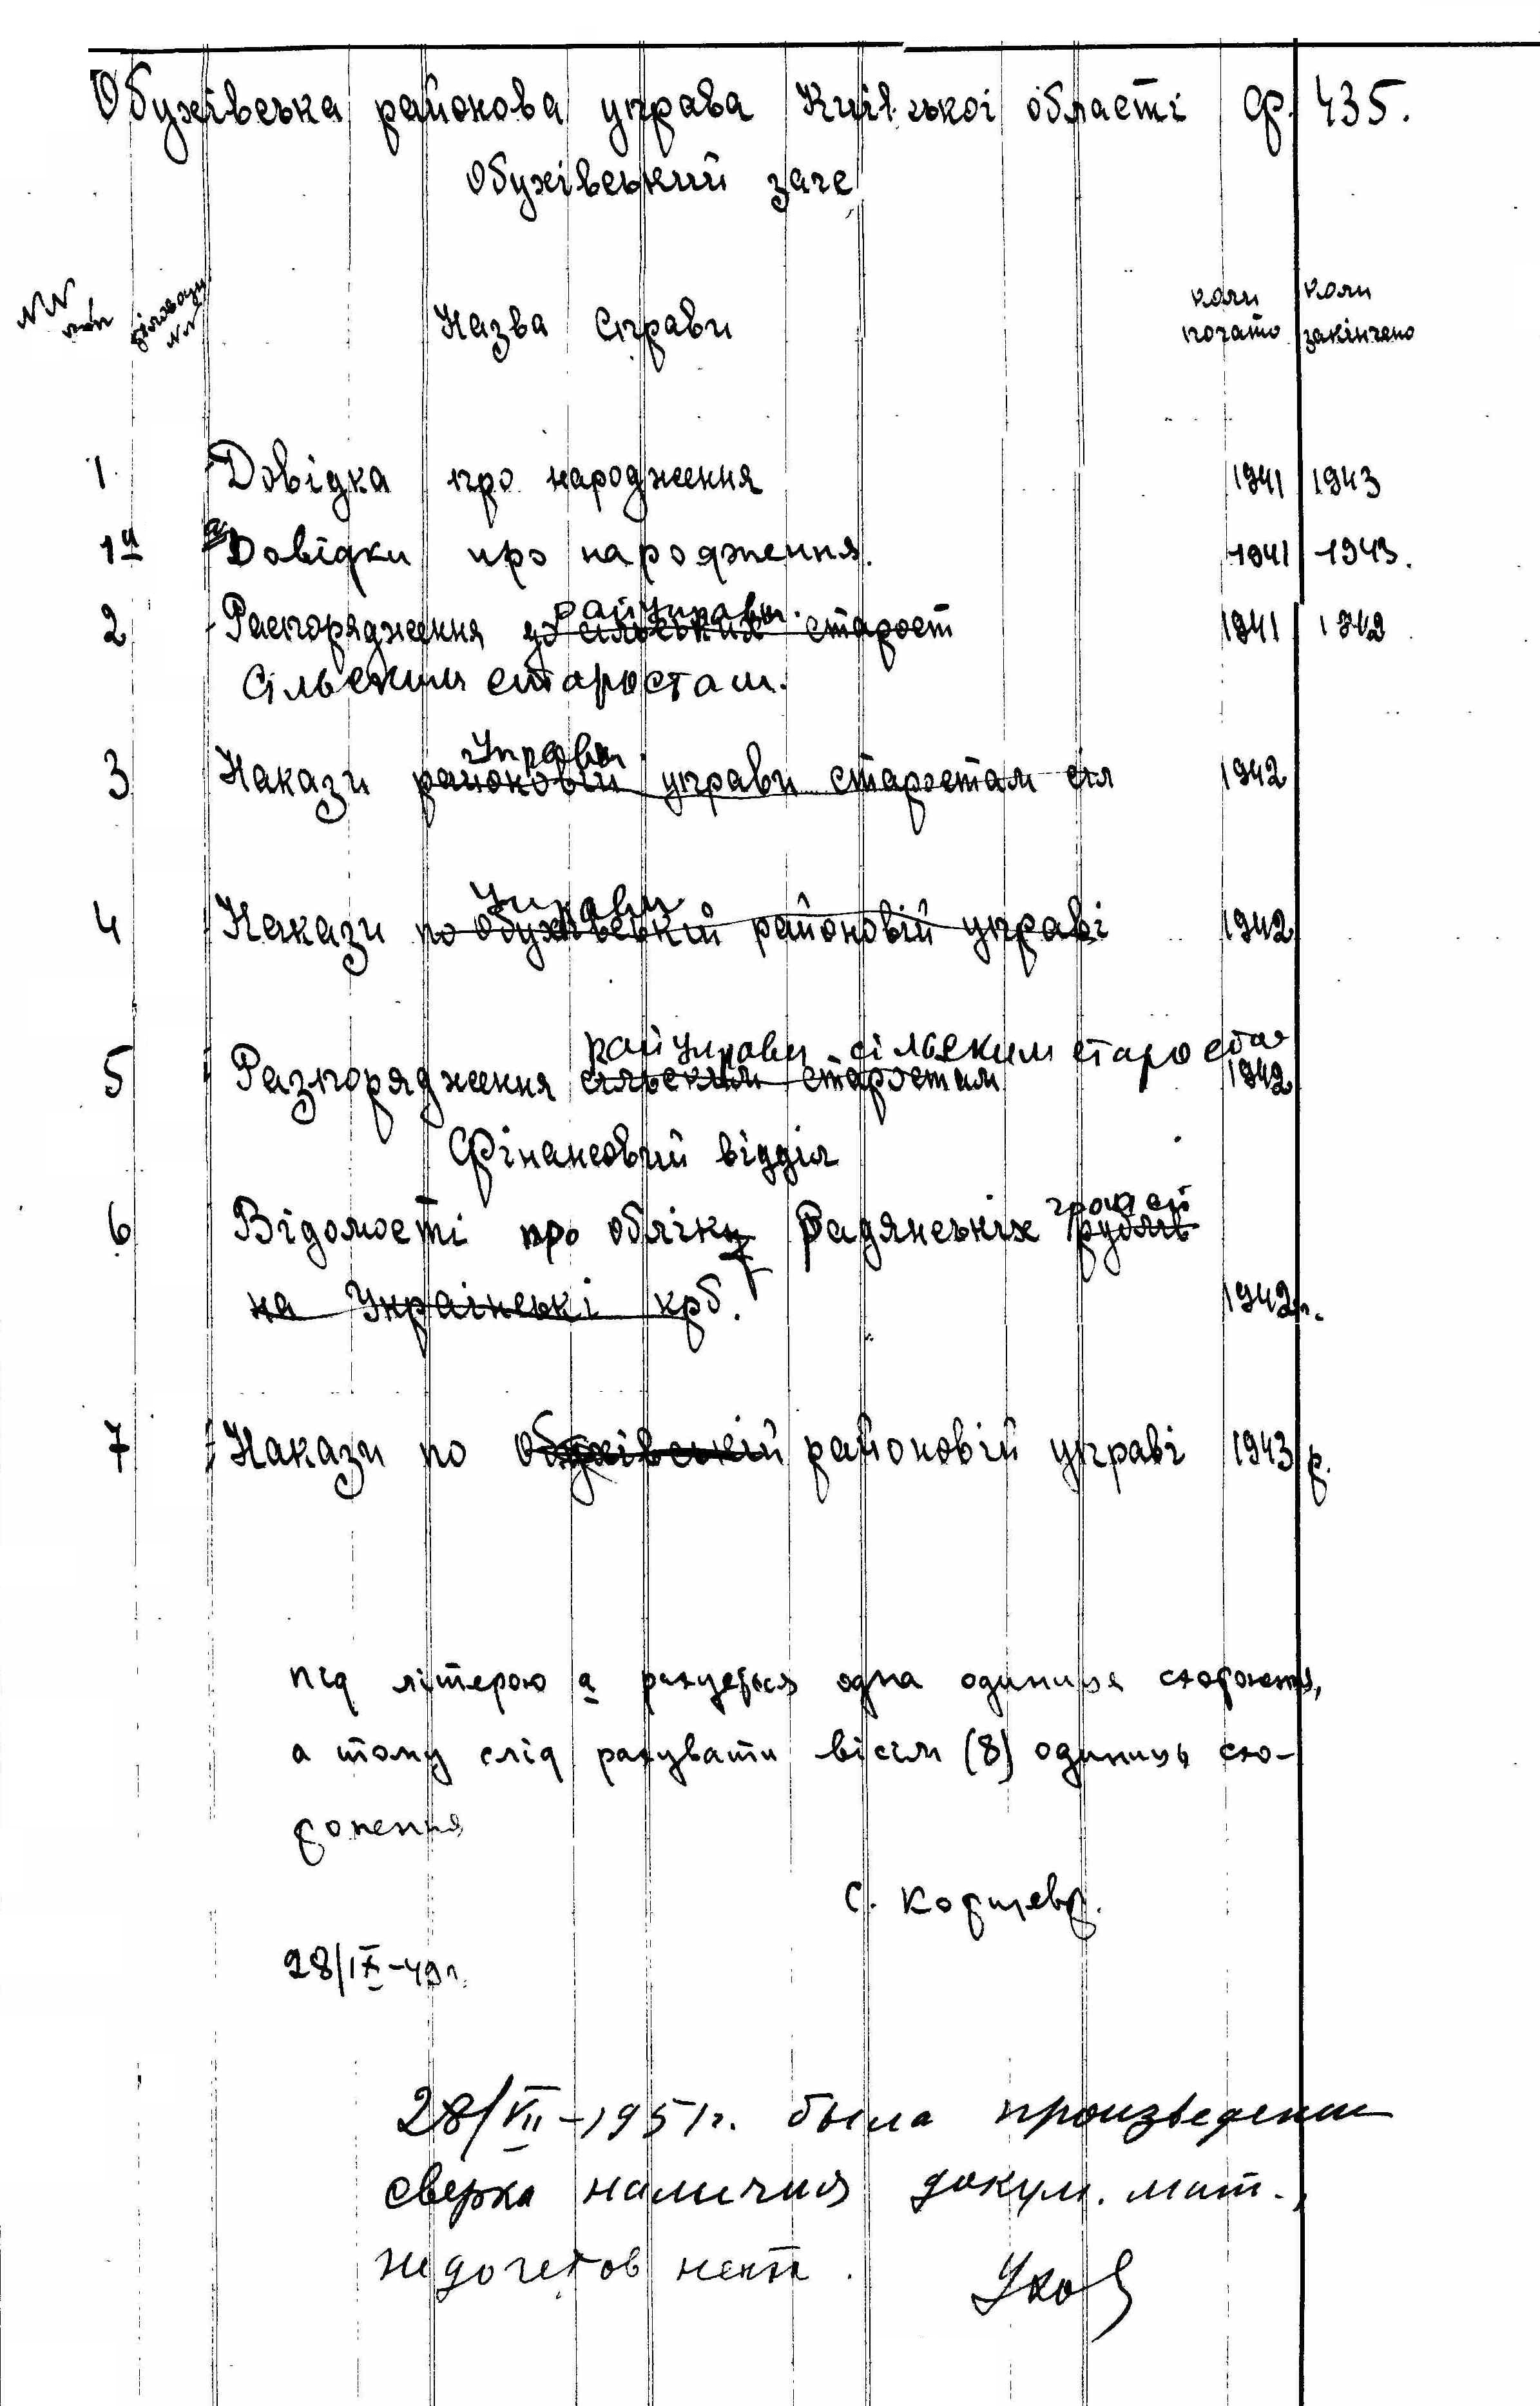 Обухівська районова управа Київської області Ф. 435.
Обухівський
NN пп NN Назва Справи коли почато коли закінчено
1 Довідка про народження 1941 1943
1а Довідки про народження. 1941 1943.
райуправи.
2 Распорядження до сільських старост 1941 1942
Сільским старостам.
Управи
3 Накази районовій управи старостам сіл 1942
Управи
4 Накази по Обухівській районовій управі 1942
райуправи сільским староста
5 Разпорядження сільским старостам 1942
Фінансовий відділ
грошей
6 Відомості про обліку Радянських рублів
на Українські крб. 1942р.
7 Накази по Обухівській районовій управі 1943 р.
під літерою а рахується одна одиниця схоронення,
а тому слід рахувати вісім (8) одиниць схо-
ронення
С.
28/IX-49р.
28/VII-1951г. была произведена
сверка наличия докум. мат.,
недочетов нет.